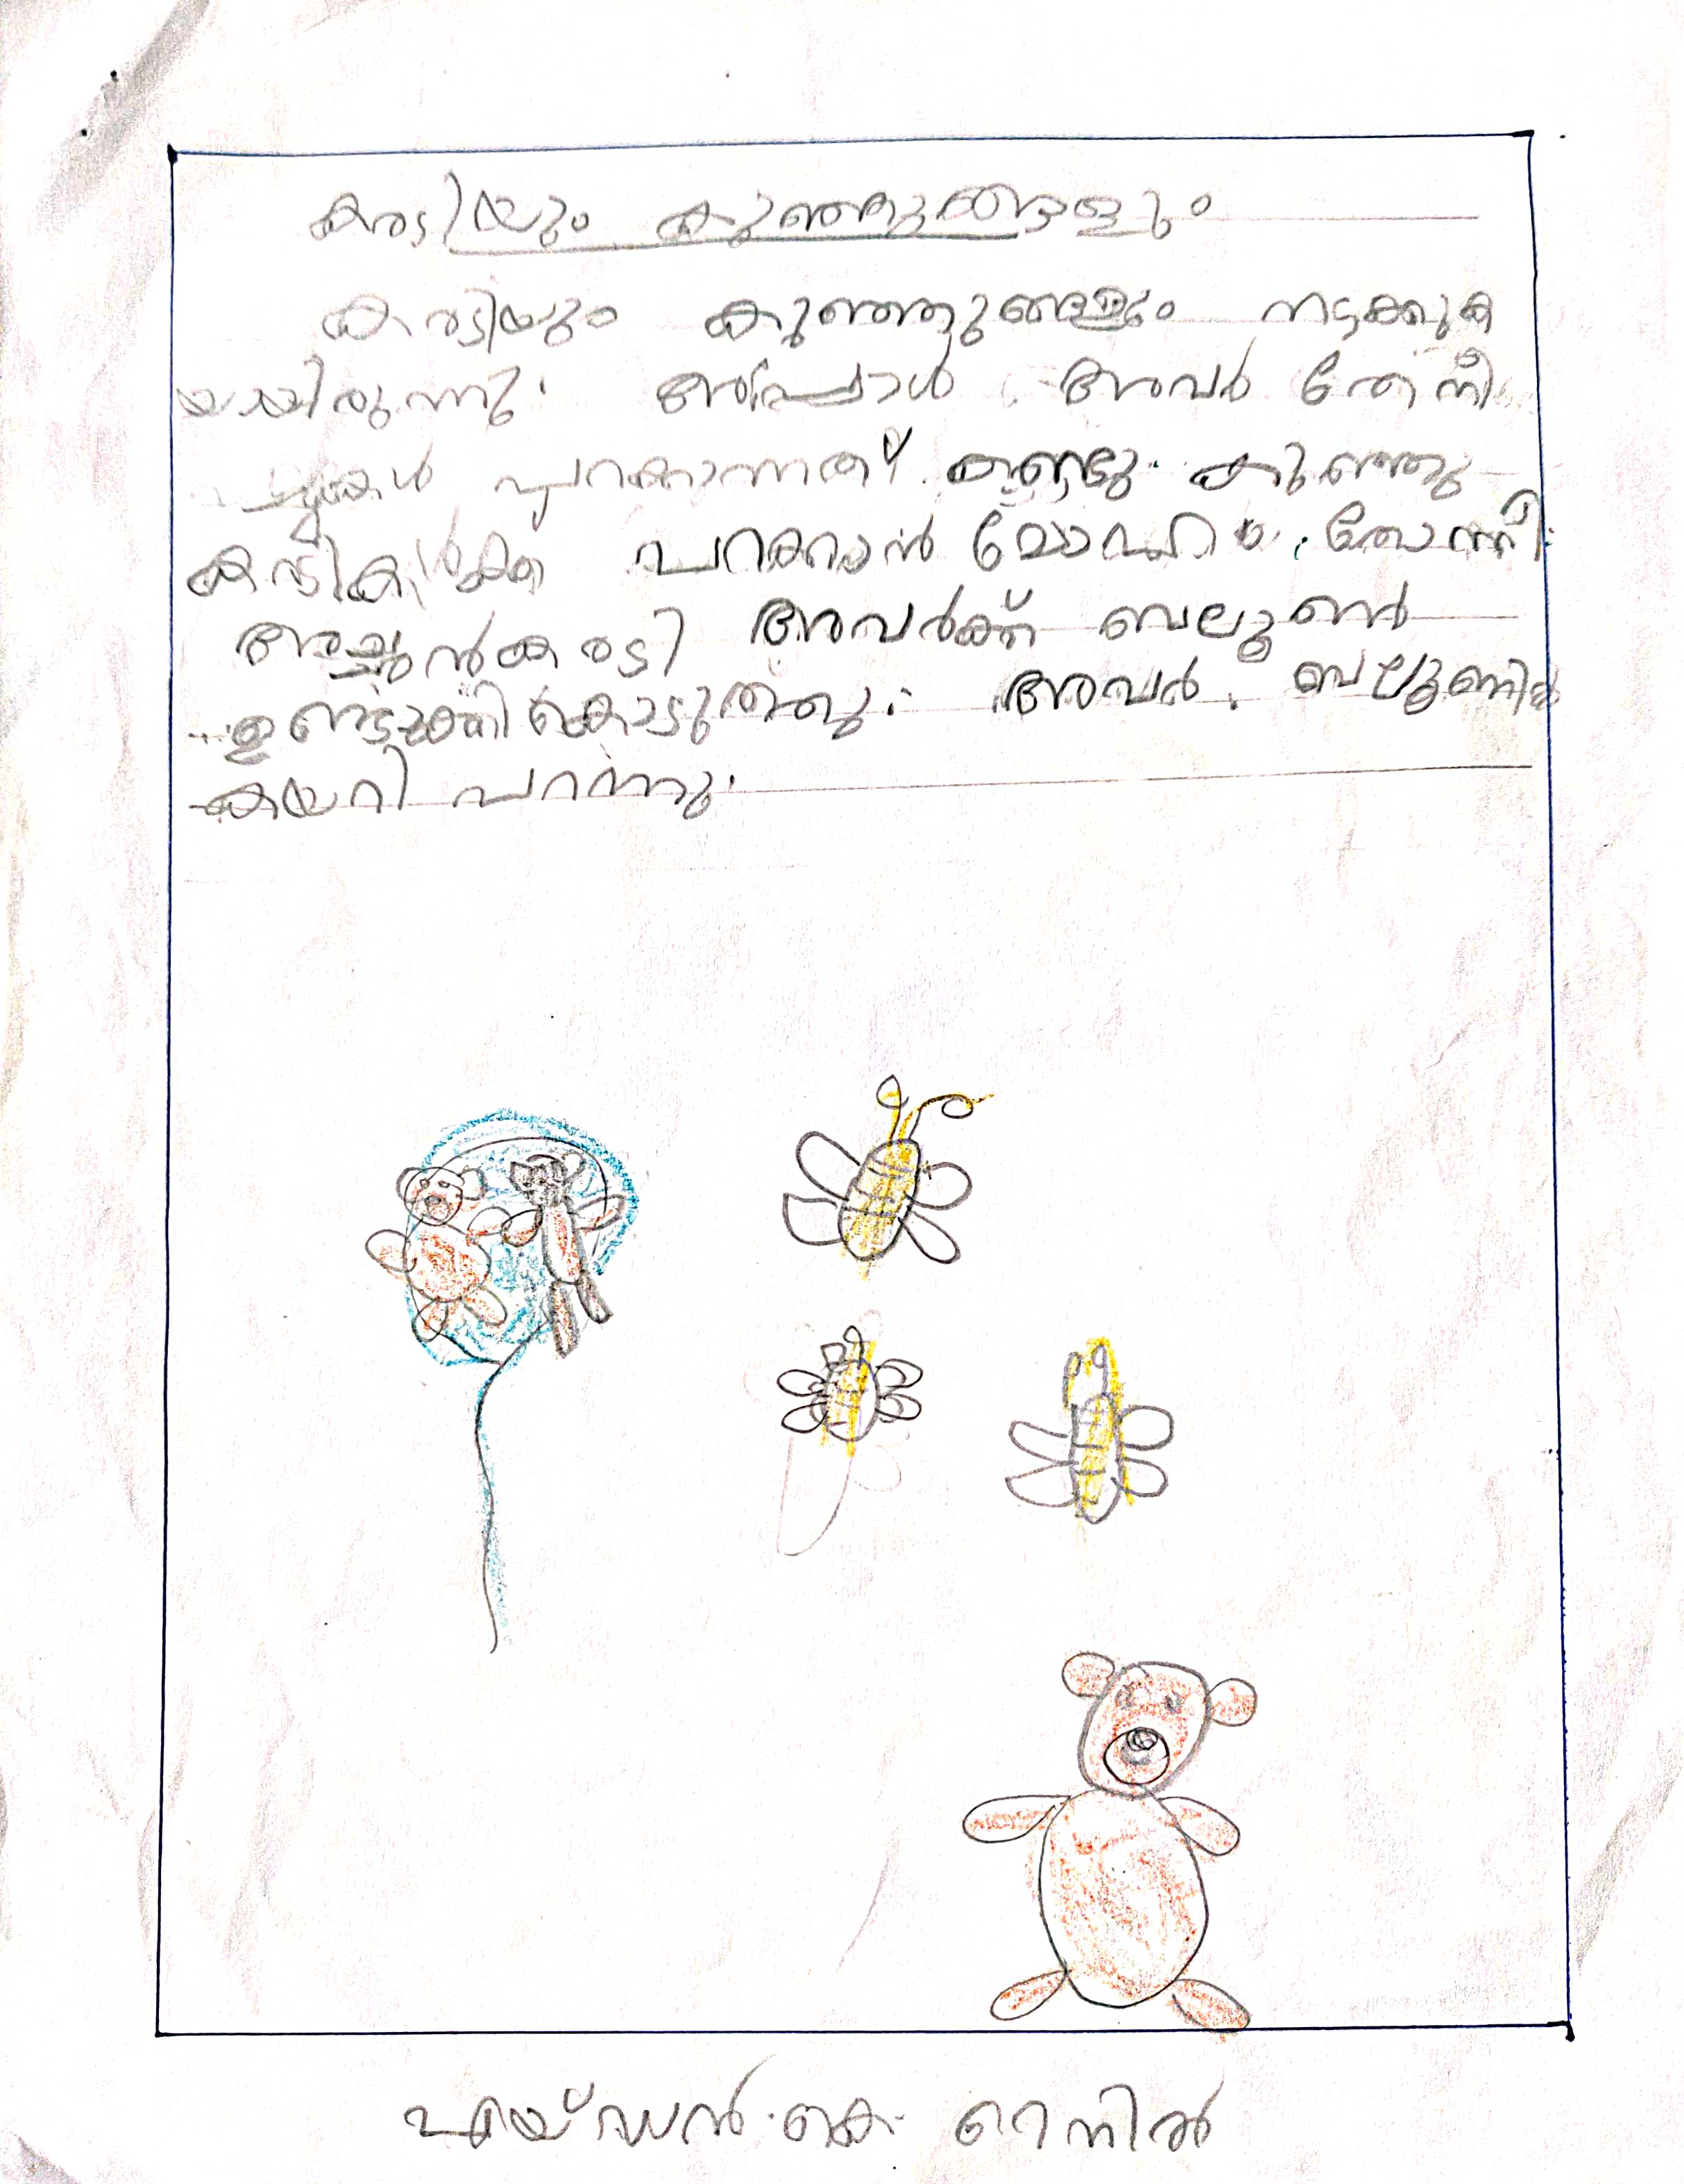 കരടിയും കുഞ്ഞുങ്ങളും
കരടിയും കുഞ്ഞുങ്ങളും നടക്കുക
യായിരുന്നു. അപ്പോൾ അവർ തേനീ
ച്ചകൾ പറക്കുന്നത് കണ്ടു. കുഞ്ഞു
കരടികൾക്ക് പറക്കാൻ മോഹം തോന്നി.
അച്ഛൻകരടി അവർക്ക് ബലൂൺ
ഉണ്ടാക്കികൊടുത്തു. അവർ ബലൂണിൽ
കയറി പറന്നു.
എയ്ഡൻ.കെ. റെനിൽ